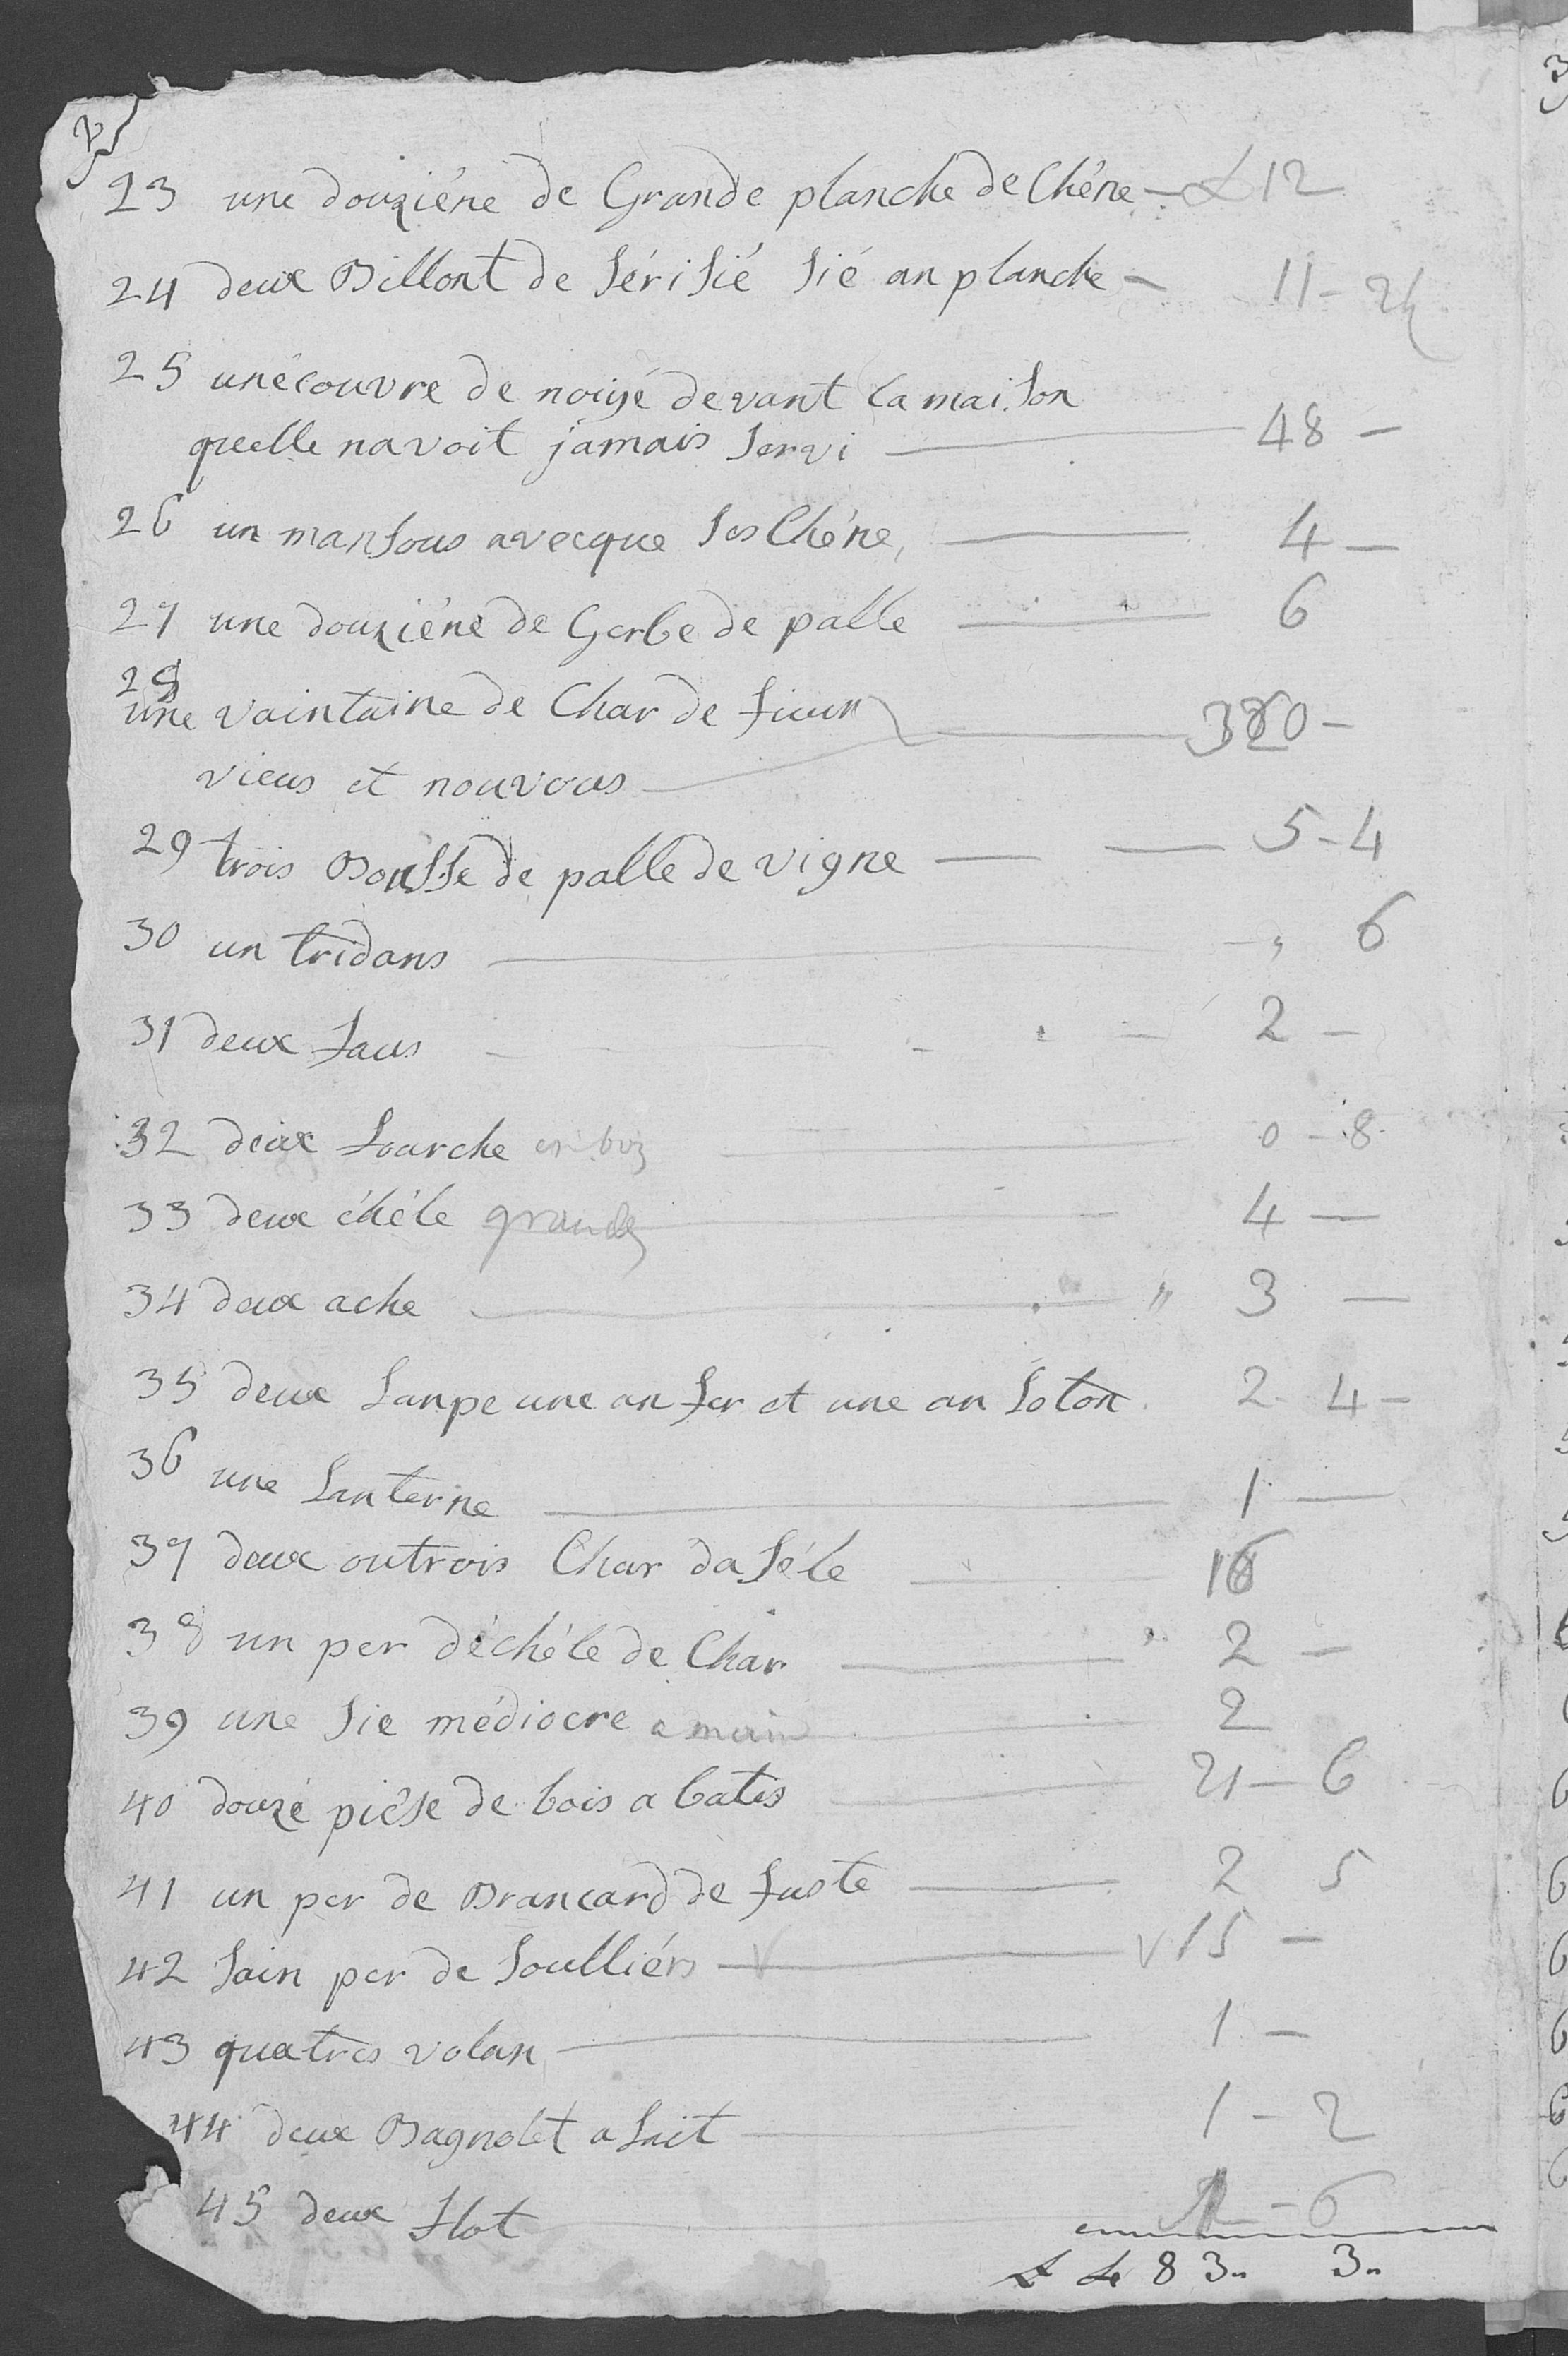 23 une douziéne de Grande planche de Chêne - £ 12
24 deux Billont de sérisié sié an planche - 11 - 2½
25 unécouvre de noiyé devant la maison
quelle navoit jamais servi 48 -
26 un mansous avecque ses Chéne, 4 -
27 une douziéne de Gerbe de palle 6
28
une vaintaine de Char de fium 320 -
vieus et nouvous
29 trois Bousse de palle de vigne 5 - 4
30 un tridans - , 6
31 deux faus 2 -
32 deux fourche en boi 0 - 8
33 deux éhéle grandes 4 -
34 deux ache " 3 -
35 deux lanpe une an fer et une an loton 2 4 -
36 une lanterne 1 -
37 deux outrois Char da séle 16
38 un per déchéle de Char 2 -
39 une sie médiocre a main 2
40 douzé piése de bois a batis 21 - 6
41 un per de Brancard de fuste 2 5
42 sain per de soulliérs 15 -
43 quatres volan 1 -
44 deux Bagnolet a lait 1 - 2
45 deux flot - 6
£ 483" 3"